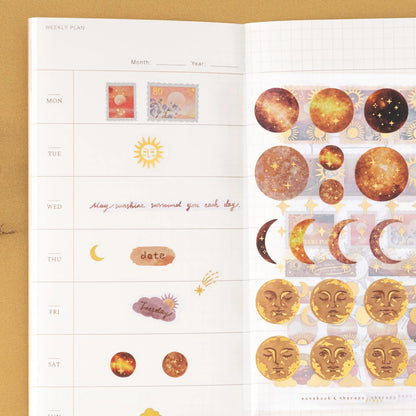 WEEKLY PLAN
Month: Year:
MON
80
TUE
WED
May sunshine surround you each day.
THU
date
FRI
Tuesday
SAT
SUN